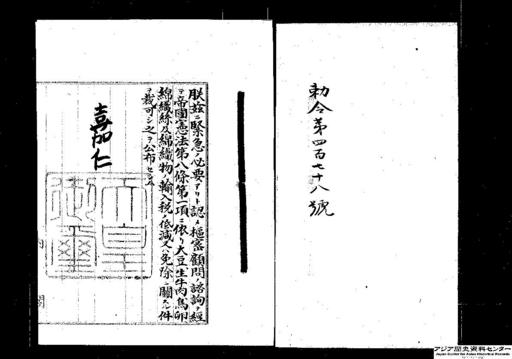 勅令第四百七十八號
朕玆ニ緊急ノ必要アリト認メ樞密顧問ノ諮詢ヲ經
テ帝國憲法第八條第一項ニ依リ大豆生牛肉鳥卵
綿織絲及綿織物ノ輸入税ノ低減又ハ免除ニ關スル件
ヲ裁可シ之ヲ公布セシム
嘉仁
天皇御璽
内閣
アジア歴史資料センター
Japan Center for Asian Historical Records